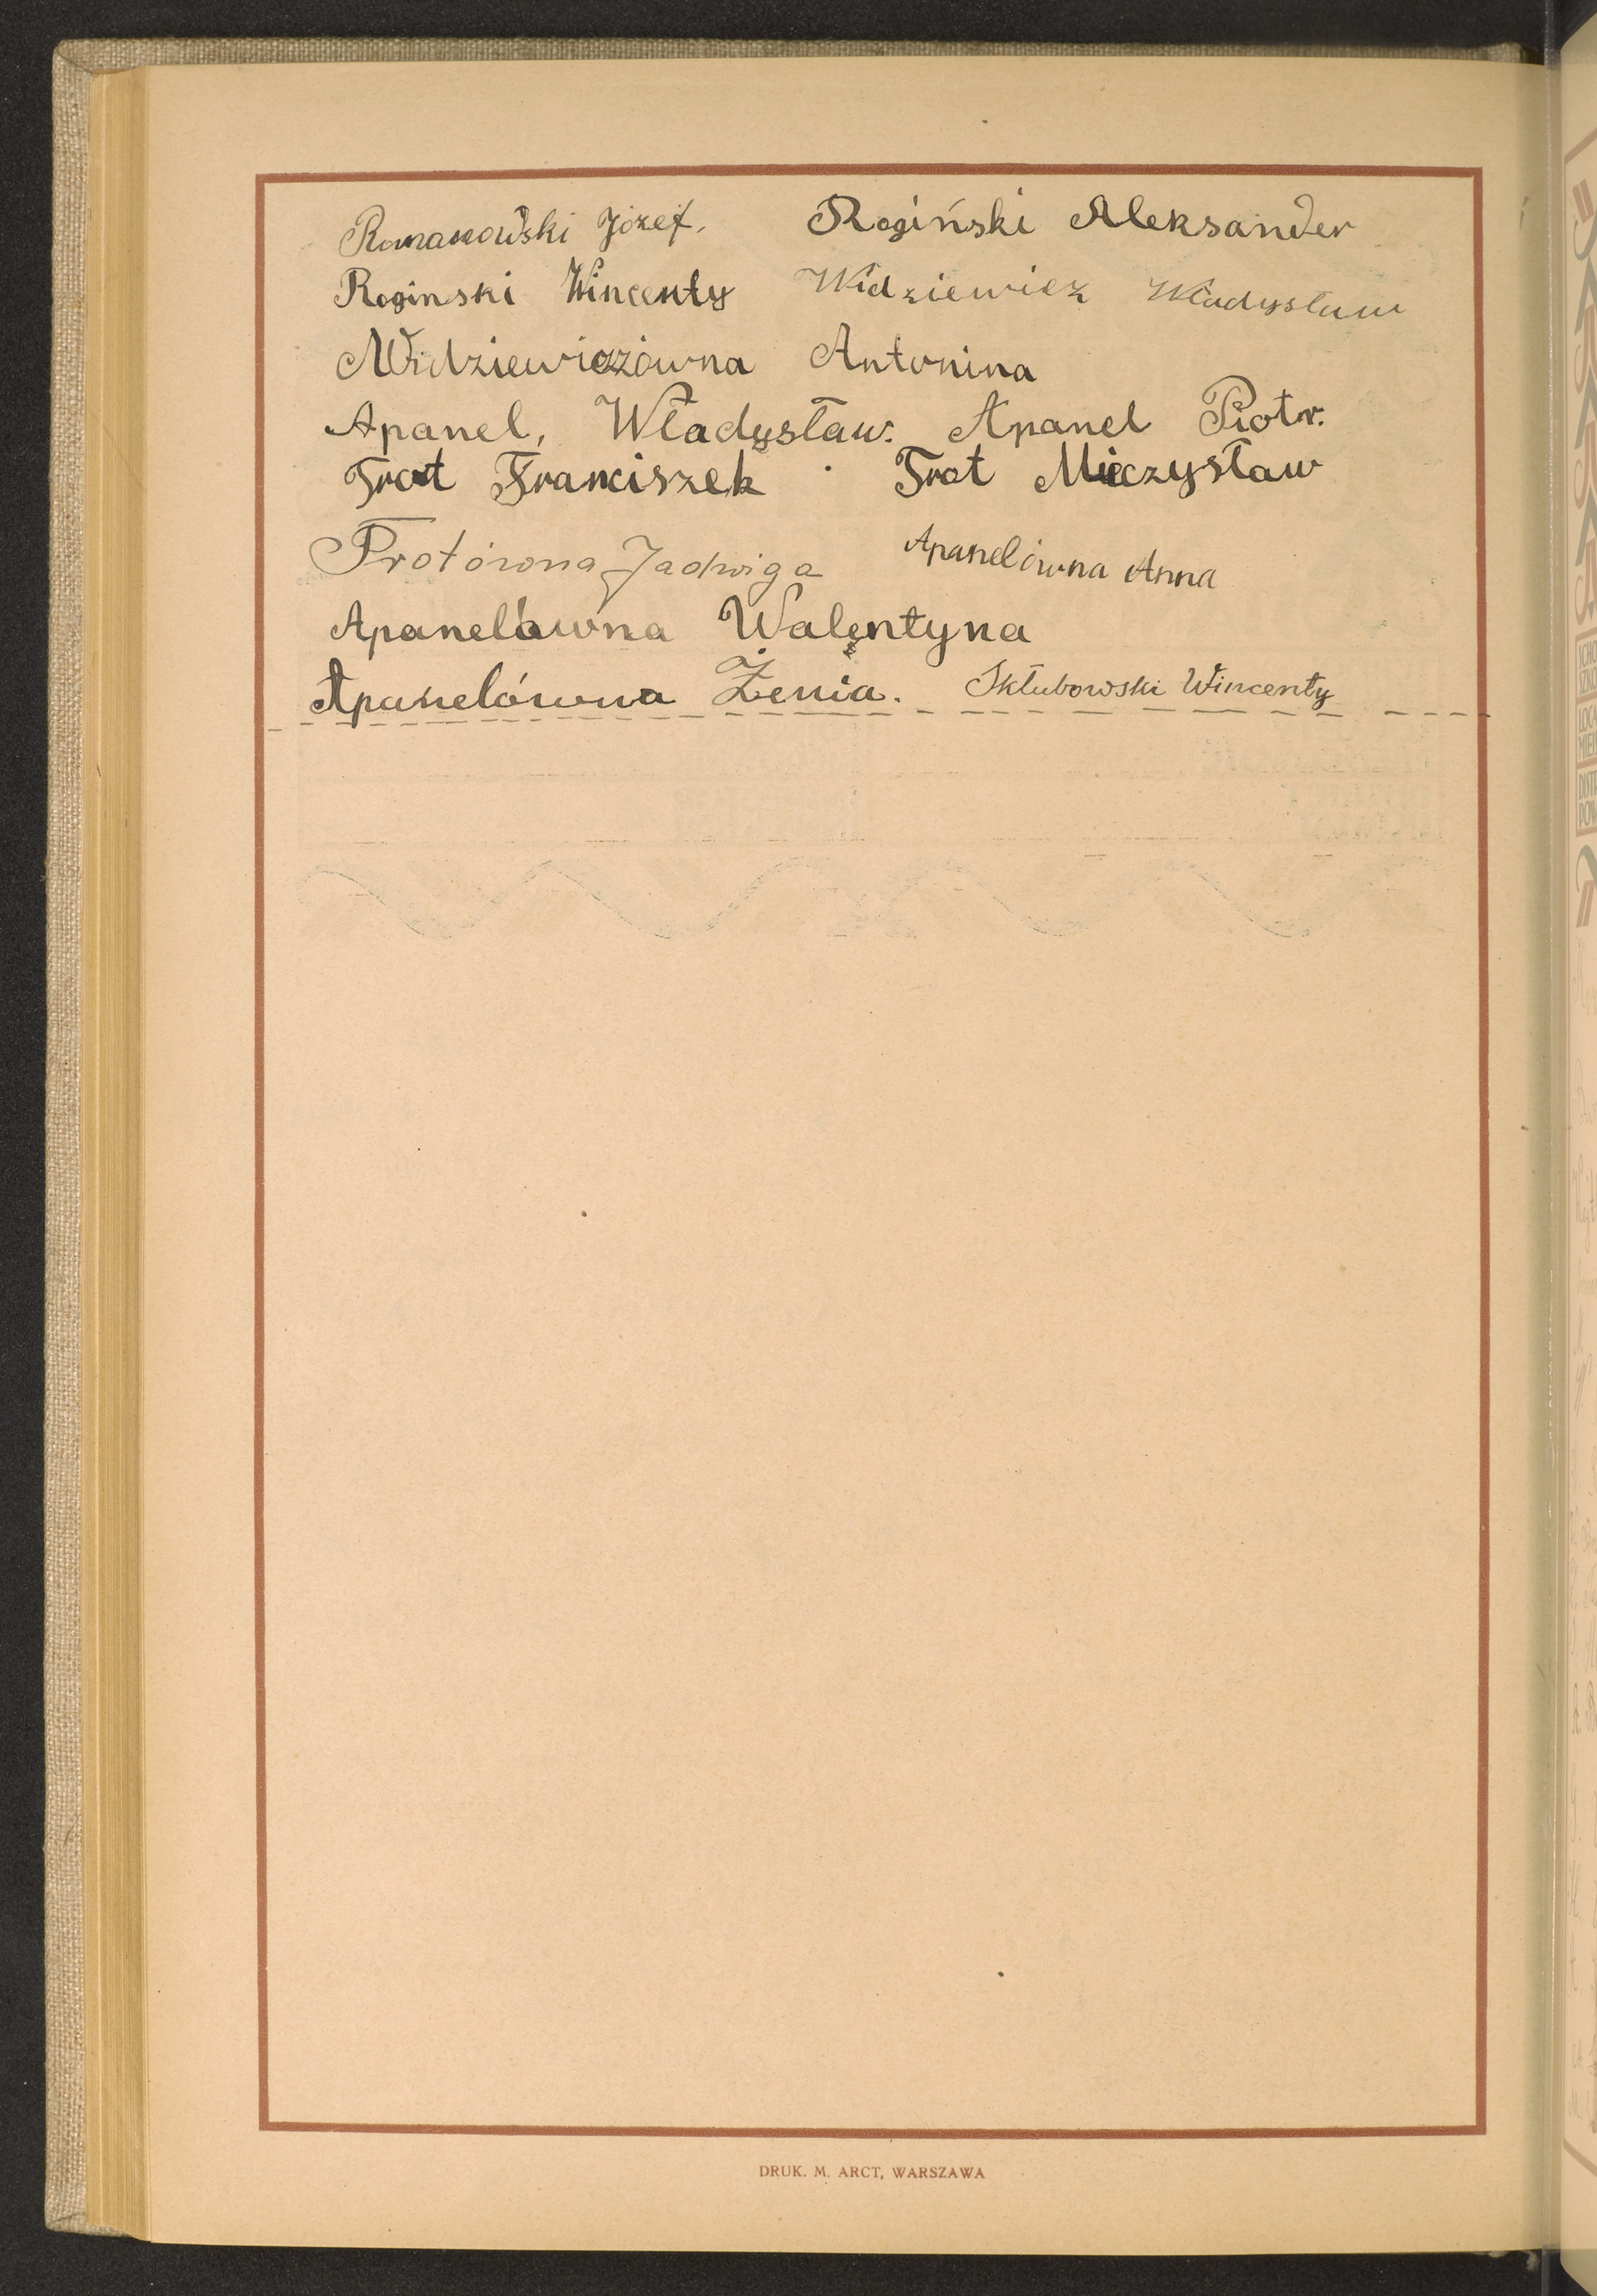 Romanowski Józef. Rogiński Aleksander
Roginski Wincenty Widziewicz Władysław
Widziewiczówna Antonina
Apanel, Władysław. Apanel Piotr.
Trot Franciszek Trot Mieczysław
Trotówna Jadwiga Apanelówna Anna
Apanelówna Walentyna
Apanelówna Żenia. Skłubowski Wincenty
DRUK. M. ARCT, WARSZAWA